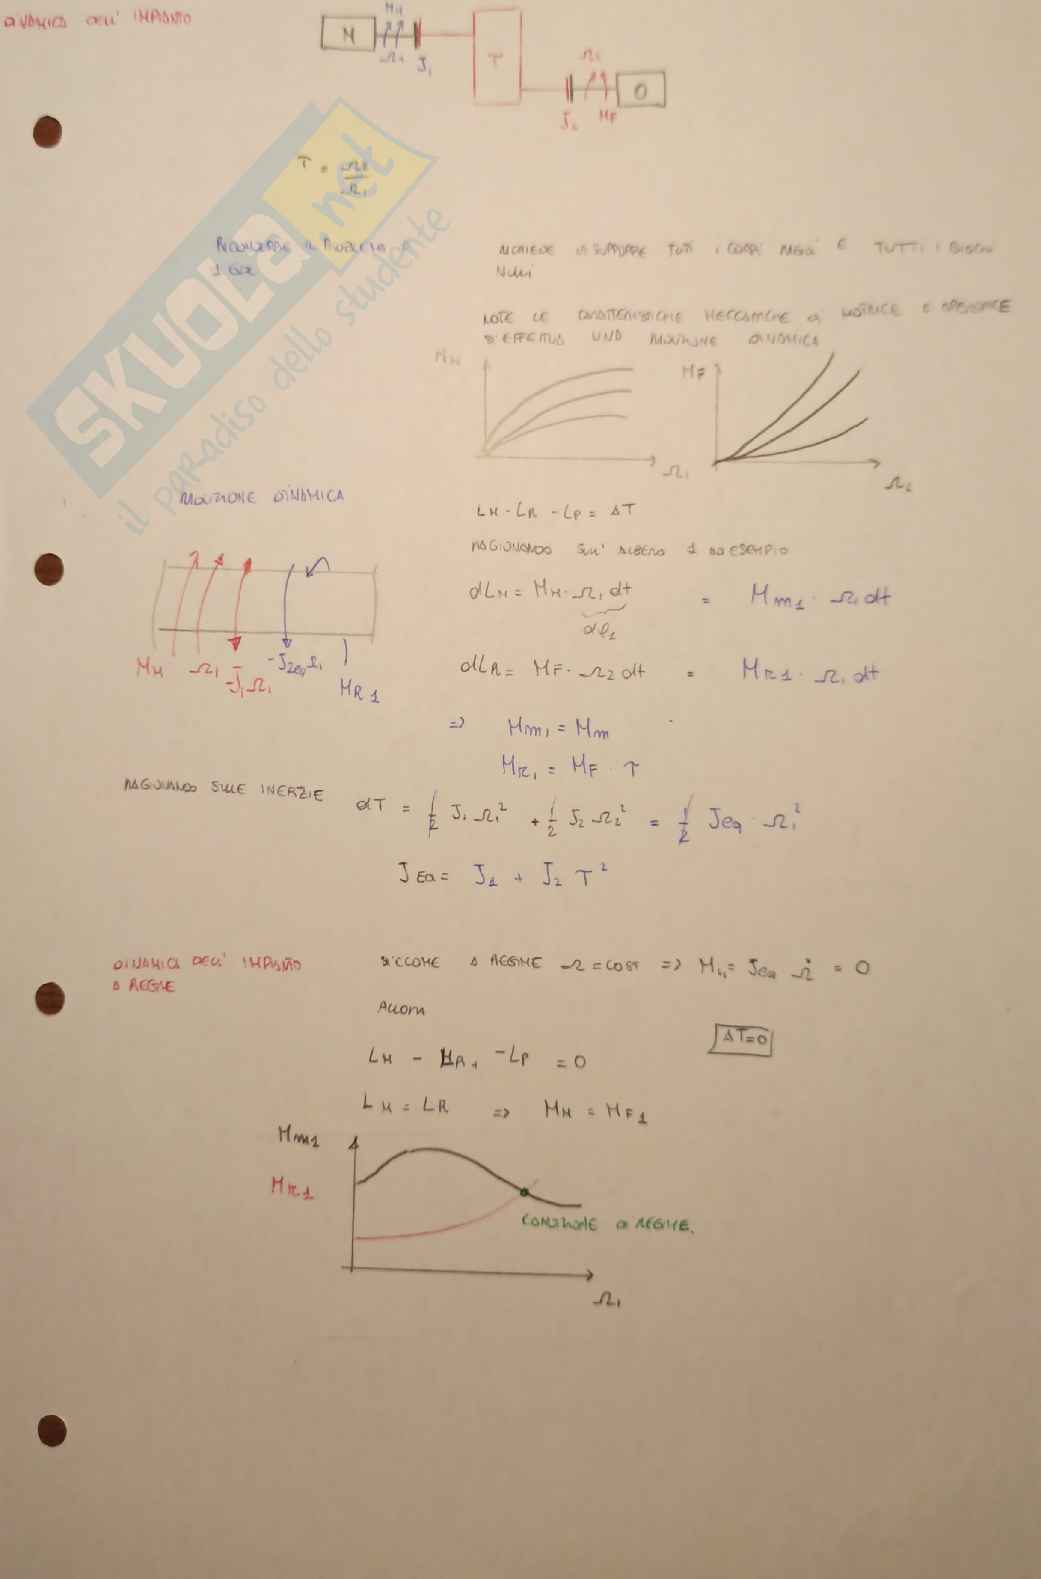 DINAMICA DELL' IMPIANTO
M MM Ω1 J1 T Ω2 J2 MF O
τ = Ω2 / Ω1
SKUOLA.net
il paradiso dello studente
RICONDURRE IL PROBLEMA A
1 GDL
RICHIEDE DI SUPPORRE TUTTI I CORPI RIGIDI E TUTTI I GIOCHI
NULLI
NOTE LE CARATTERISTICHE MECCANICHE DI MOTRICE E OPERATRICE
SI EFFETTUA UNA RIDUZIONE DINAMICA
MM Ω1
MF Ω2
RIDUZIONE DINAMICA
LM - LR - LP = ΔT
RAGIONANDO SULL' ALBERO 1 AD ESEMPIO
dLM = MM · Ω1 dt = Mm1 · Ω1 dt
dLR = MF · Ω2 dt = MR1 · Ω1 dt
MM Ω1 -J1 Ω1 -J2eq Ω1 MR1
=> Mm1 = Mm
MR1 = MF · τ
RAGIONANDO SULLE INERZIE dT = 1/2 J1 Ω1² + 1/2 J2 Ω2² = 1/2 Jeq · Ω1²
JEQ = J1 + J2 τ²
DINAMICA DELL' IMPIANTO
A REGIME
SICCOME A REGIME Ω = COST => Min = Jeq Ω̇ = 0
ALLORA
ΔT=0
LM - LR1 - LP = 0
LM = LR => MM = MF1
Mm1
MR1
CONDIZIONE DI REGIME.
Ω1